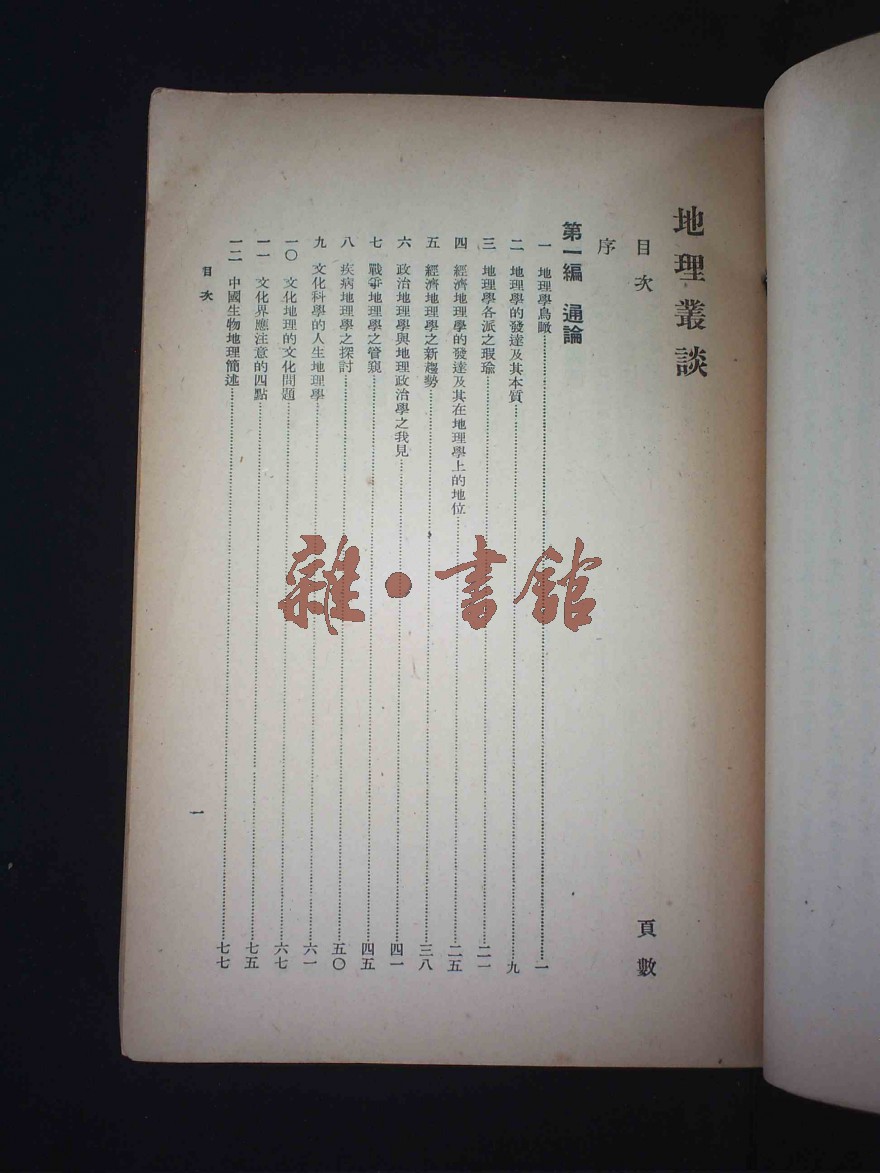 地理叢談
目次
頁數
序
第一編 通論
一 地理學鳥瞰……一
二 地理學的發達及其本質……九
三 地理學各派之瑕瑜……二一
四 經濟地理學的發達及其在地理學上的地位……二五
五 經濟地理學之新趨勢……三八
六 政治地理學與地理政治學之我見……四一
七 戰爭地理學之管窺……四五
八 疾病地理學之探討……五〇
九 文化科學的人生地理學……六一
一〇 文化地理的文化問題……六七
一一 文化界應注意的四點……七五
一二 中國生物地理簡述……七七
目次
一
雜·書館